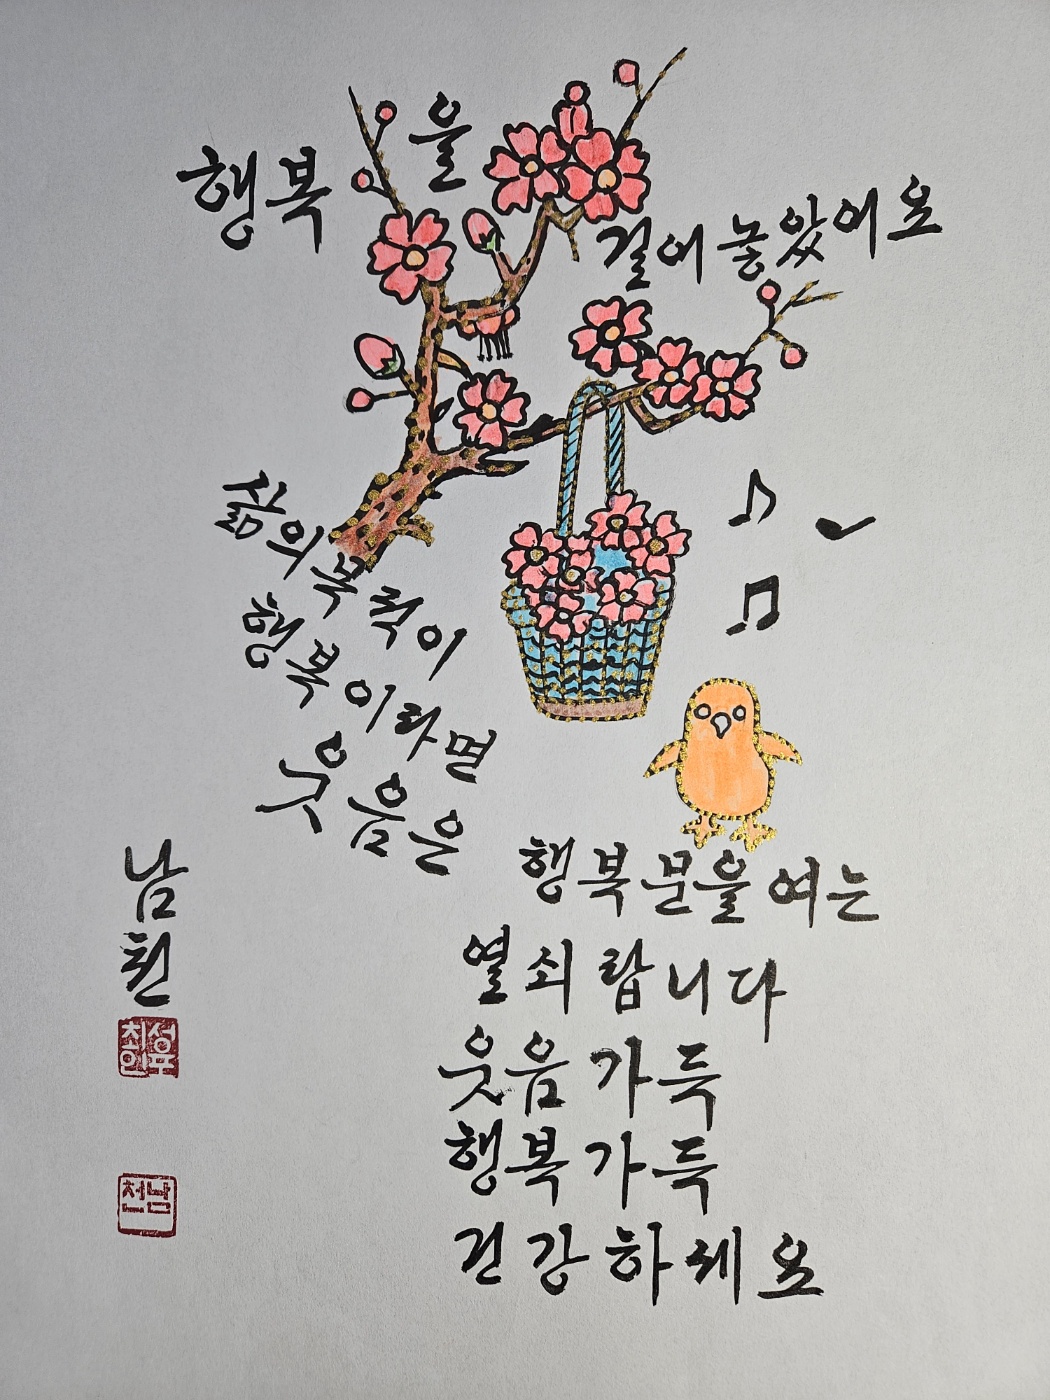 행복을
걸어놓았어요
삶의목적이
행복이라면
웃음은
행복문을여는
열쇠랍니다
웃음가득
행복가득
건강하세요
남천
최성표인
남천